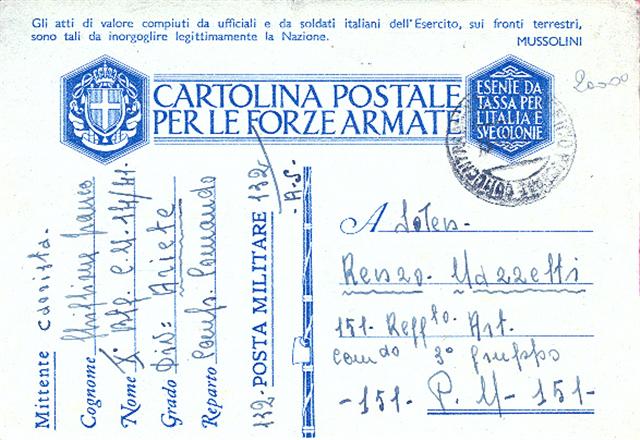 Gli atti di valore compiuti da ufficiali e da soldati italiani dell'Esercito, sui fronti terrestri,
sono tali da inorgoglire legittimamente la Nazione.
MUSSOLINI
CARTOLINA POSTALE
PER LE FORZE ARMATE
ESENTE DA
TASSA PER
L'ITALIA E
SVE COLONIE
20000
Mittente
Cognome
Nome X° Btg. C.M. 14/41.
Grado Div: Ariete
Reparto Comp. Comando
132-POSTA MILITARE 132
-A.S-
A
Renzo. Mazzetti
151. Regg to. Art.
Com do 3° gruppo
-151- P.M-151-